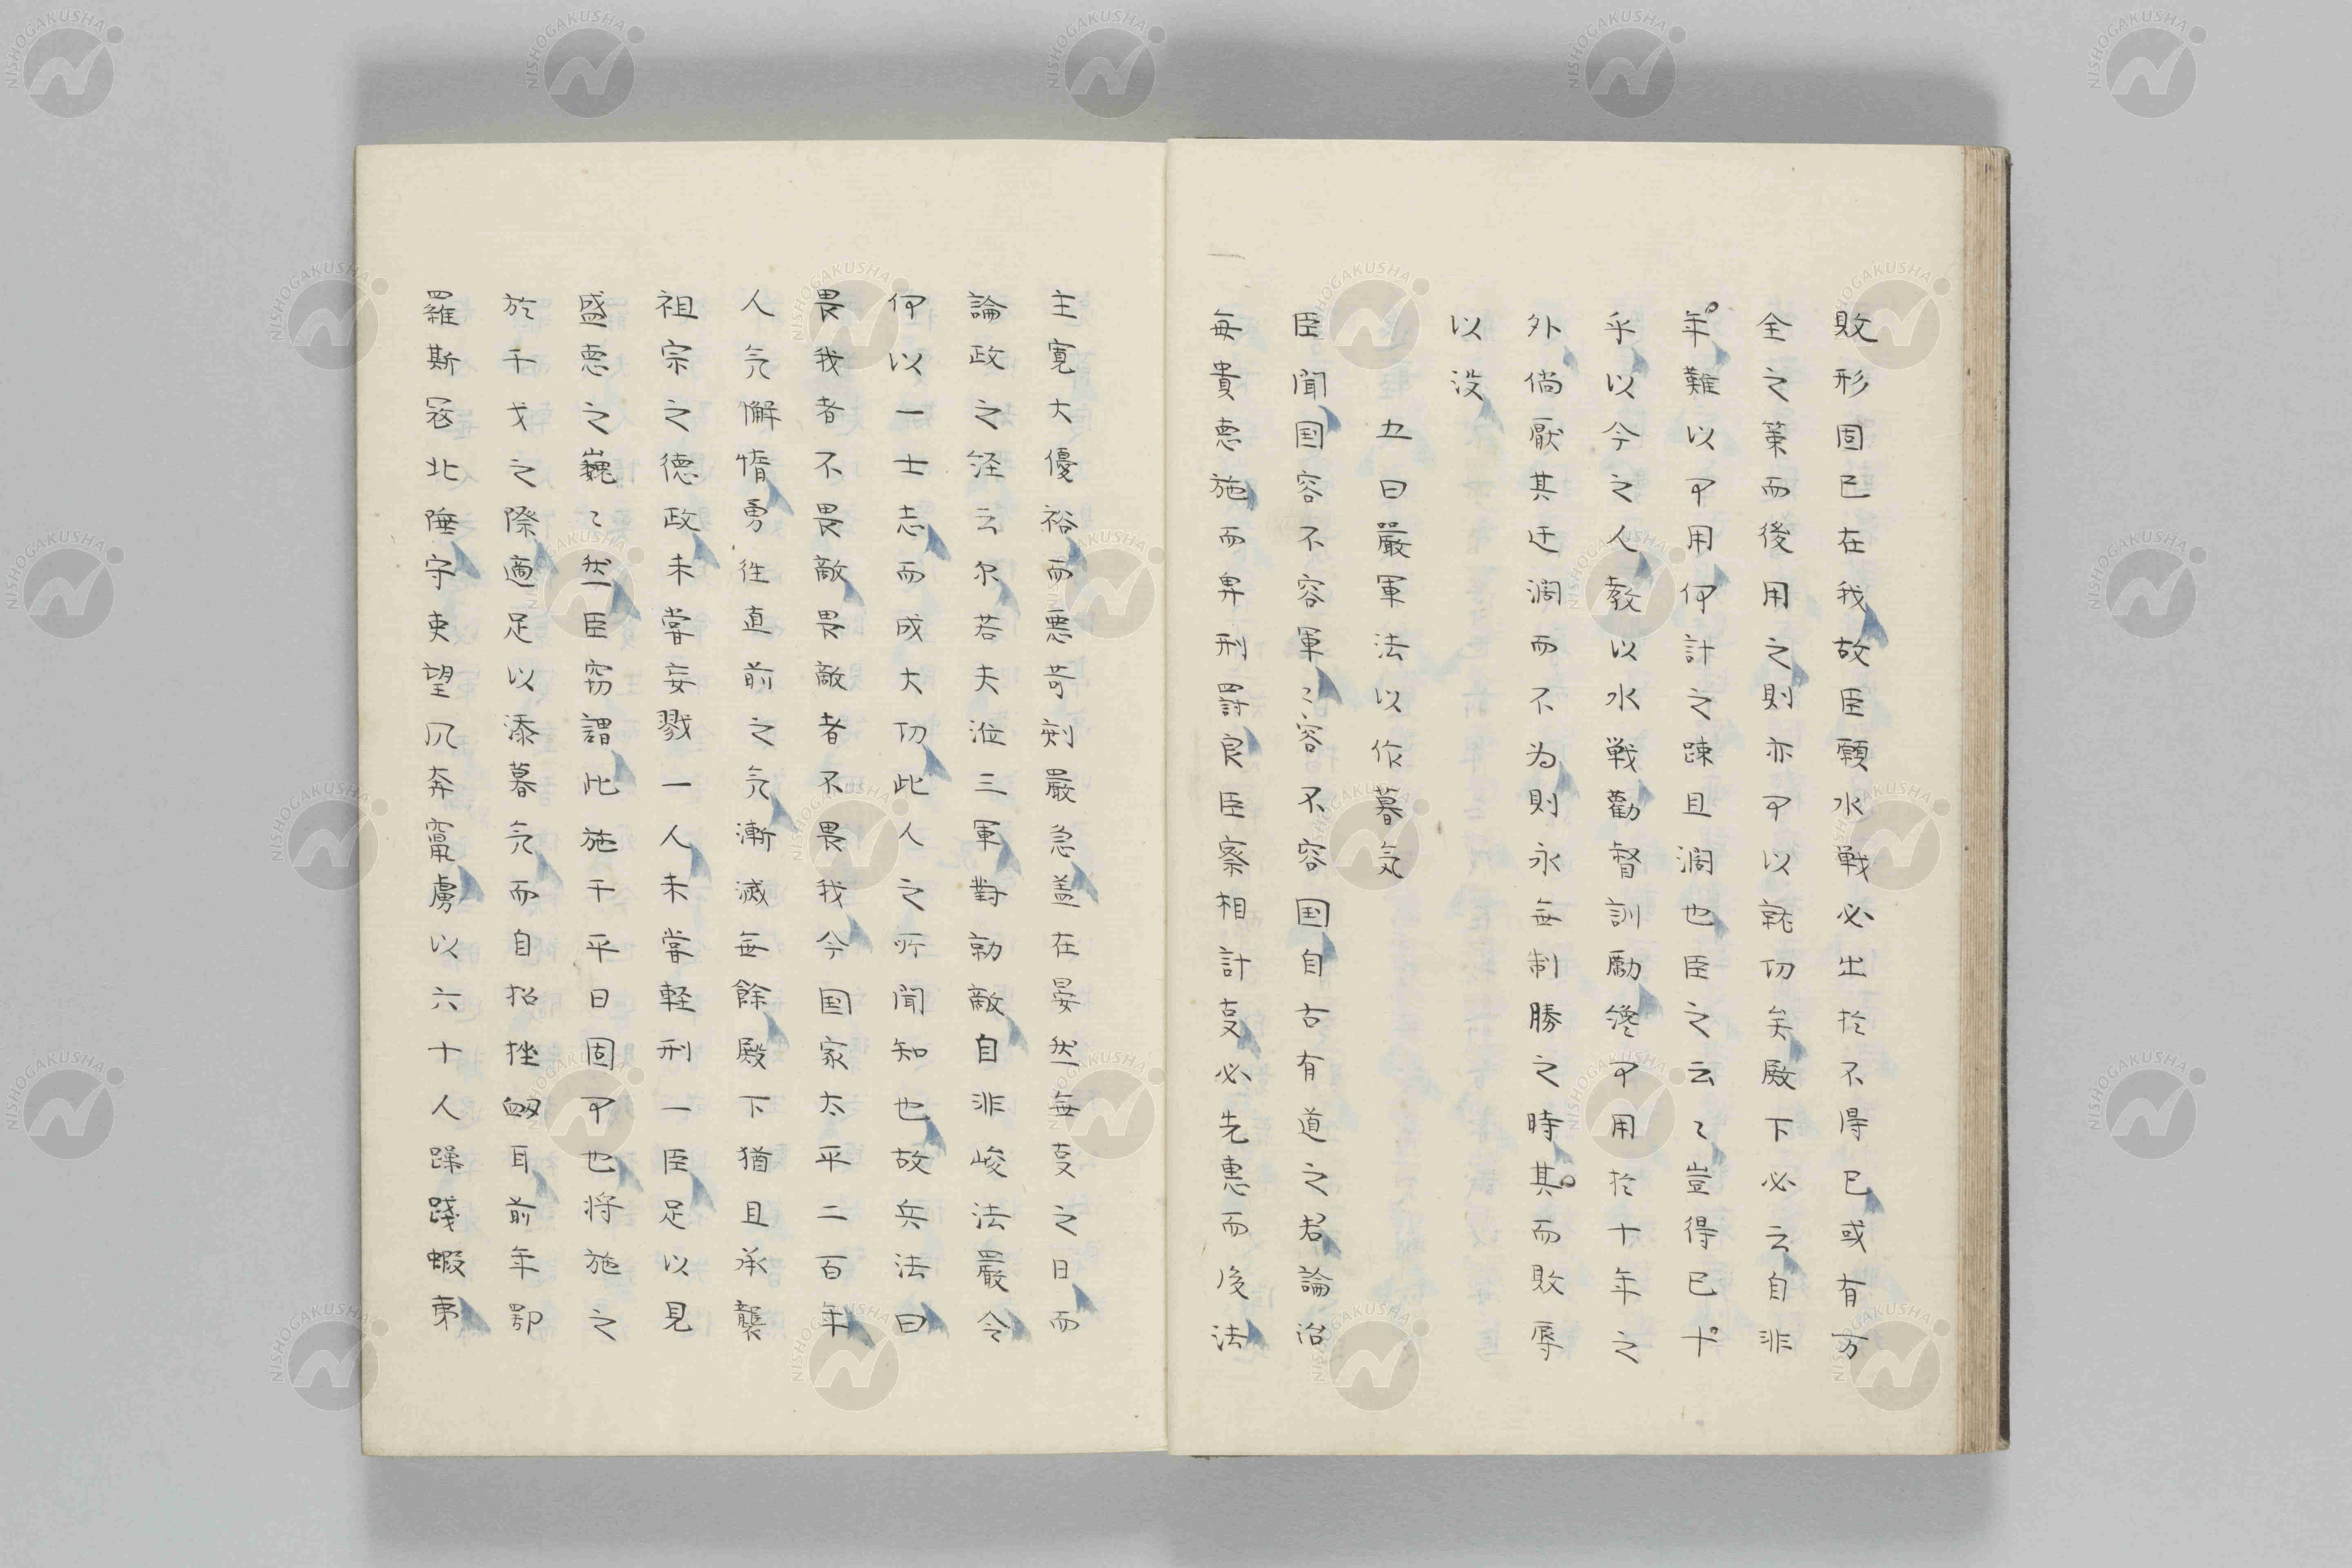 敗形固已在我故臣願水戦必出於不得已或有万
全之策而後用之則亦可以就功矣殿下必云自非
年難以可用何計之踈且濶也臣之云〻豈得已十
乎以今之人教以水戦勸督訓勵纔可用於十年之
外倘厭其迂濶而不为則永無制勝之時其而敗辱
以没
五曰嚴軍法以作暮気
臣聞国容不容軍〻容不容国自古有道之君論治
毎貴恵施而卑刑罰良臣察相計㕝必先恵而後法
主寛大優裕而悪苛刻嚴急盖在晏然無㕝之日而
論政之経云尔若夫涖三軍對勍敵自非峻法嚴令
何以一士志而成大功此人之所聞知也故兵法曰
畏我者不畏敵畏敵者不畏我今国家太平二百年
人気懈惰勇徃直前之気漸滅無餘殿下猶且承襲
祖宗之徳政未甞妄戮一人未甞軽刑一臣足以見
盛悳之巍〻然臣窃謂此施于平日固可也将施之
於干戈之際適足以添暮気而自招挫衂耳前年鄂
羅斯冦北陲守吏望風奔竄虜以六十人蹂踐蝦夷
NISHOGAKUSHA